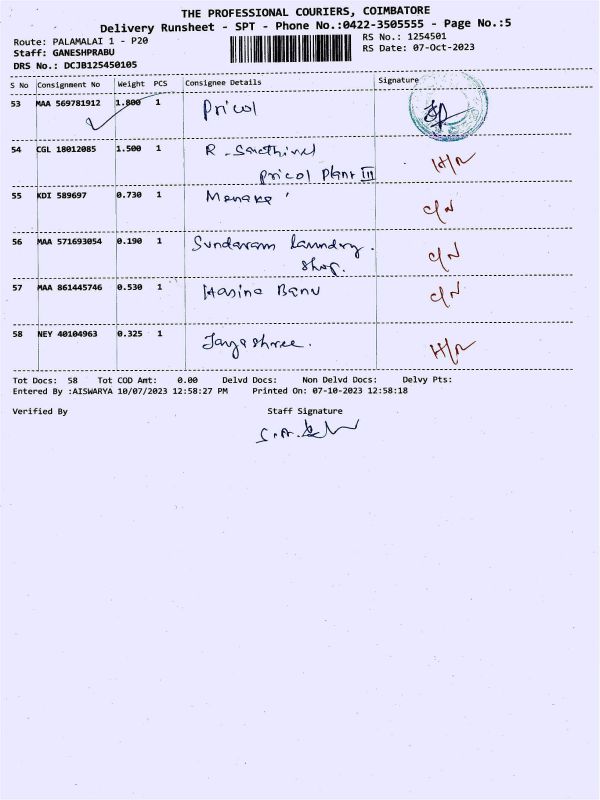 THE PROFESSIONAL COURIERS, COIMBATORE
Delivery Runsheet - SPT - Phone No.:0422-3505555 - Page No.:5
Route: PALAMALAI 1 - P20
Staff: GANESHPRABU
DRS No.: DCJB125450105
RS No.: 1254501
RS Date: 07-Oct-2023
S No Consignment No Weight PCS Consignee Details Signature
53 MAA 569781912 1.800 1 Pricol
54 CGL 18012085 1.500 1 R. H/R
Pricol Plant III
55 KDI 589697 0.730 1 Menaka C/N
56 MAA 571693054 0.190 1 Sundaram Laundry C/N
Shop.
57 MAA 861445746 0.530 1 Hasina Banu C/N
58 NEY 40104963 0.325 1 Jayashree. H/R
Tot Docs: 58 Tot COD Amt: 0.00 Delvd Docs: Non Delvd Docs: Delvy Pts:
Entered By :AISWARYA 10/07/2023 12:58:27 PM Printed On: 07-10-2023 12:58:18
Verified By Staff Signature